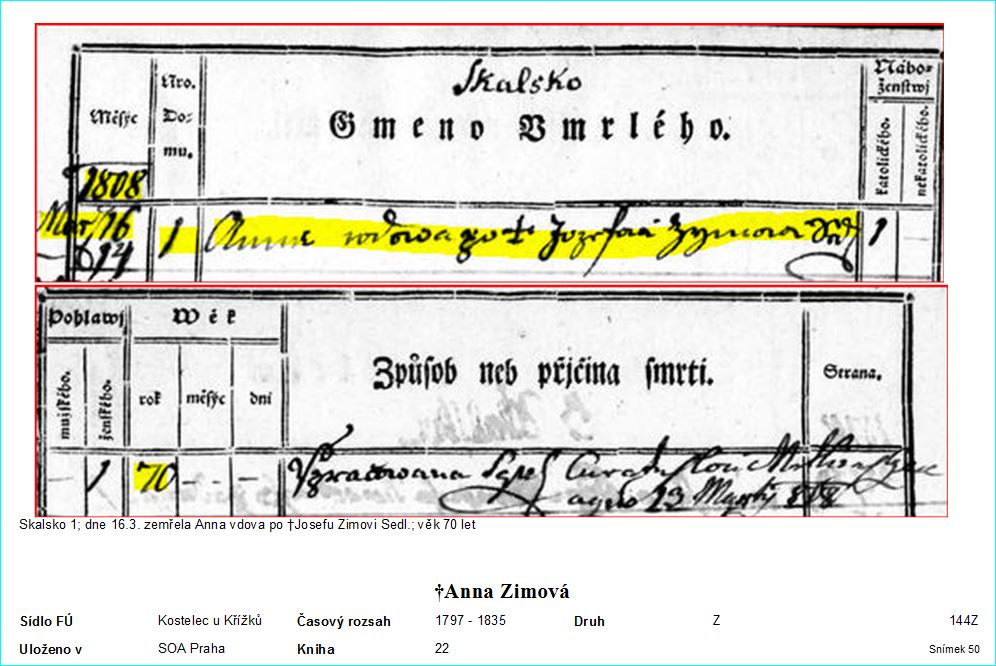 Skalsko
Nro.
Do=
mu.
Měsýc
Gmeno Vmrlého.
Nábo=
ženstwj
katolického.
nekatolického.
1808
Mart. 16 1 Anna wdowa po † Jozefowi Zymowi Sed. 1
14
Pohlawj
Wěk
mužského.
ženského.
rok
měsýc
dni
Způsob neb přjčina smrti.
Strana.
1 70 - - -
Skalsko 1; dne 16.3. zemřela Anna vdova po †Josefu Zimovi Sedl.; věk 70 let
†Anna Zimová
Sídlo FÚ Kostelec u Křížků Časový rozsah 1797 - 1835 Druh Z 144Z
Uloženo v SOA Praha Kniha 22 Snímek 50